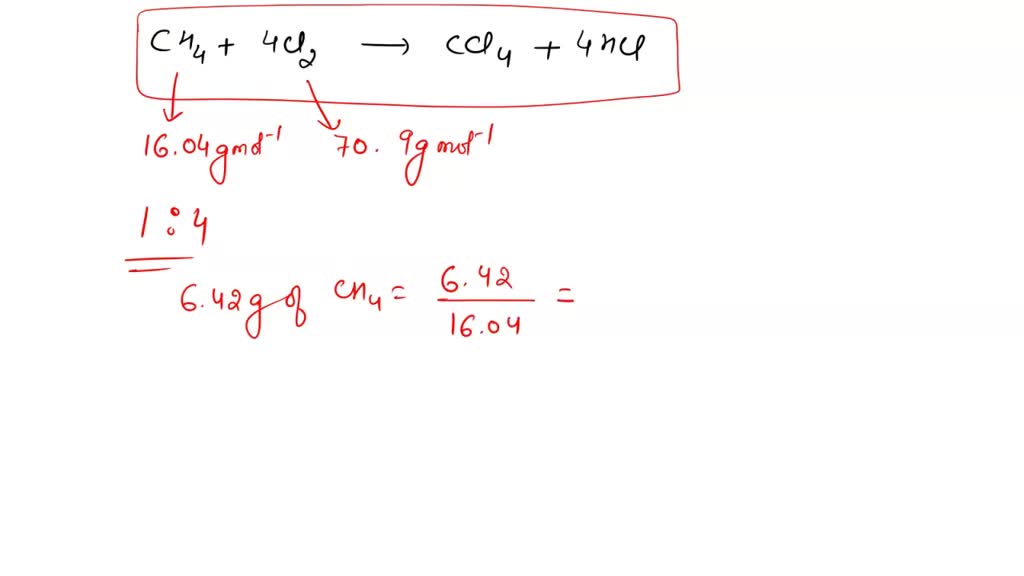 CH4 + 4Cl2 → CCl4 + 4HCl
16.04 g mol-1 70.9 g mol-1
1 : 4
6.42 g of CH4 = 6.42 / 16.04 =